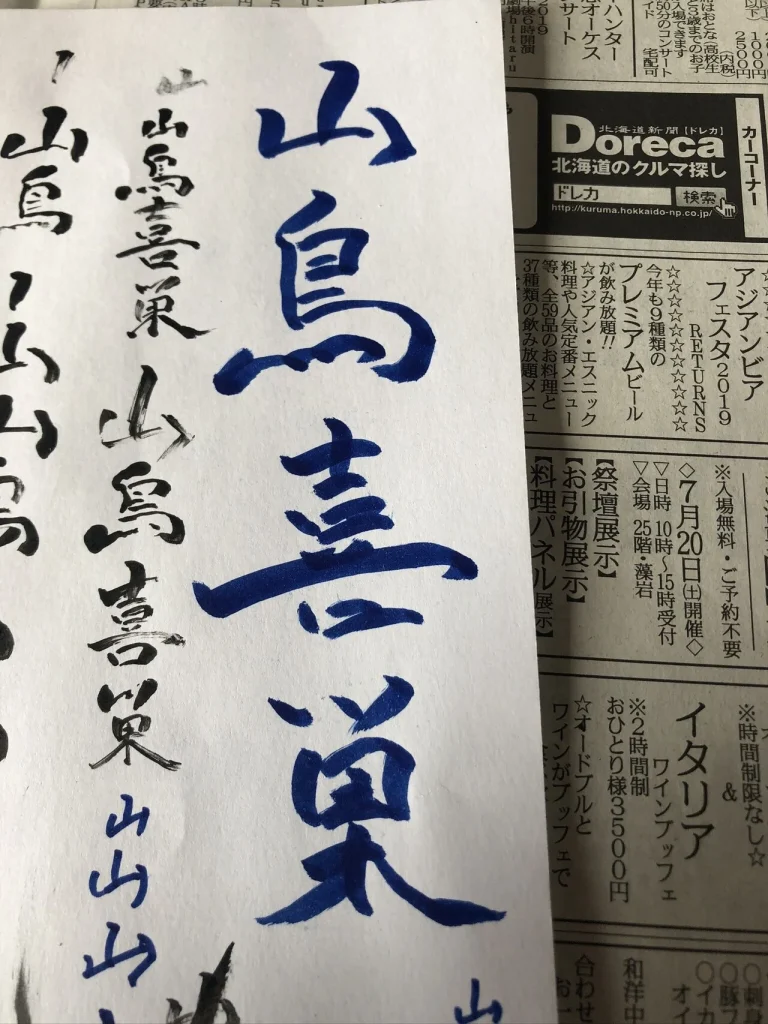 山鳥喜巣
山
山鳥喜巣
山鳥喜巣
山山山
山鳥
山
山
山
カーコーナー
北海道新聞【ドレカ】
Doreca
北海道のクルマ探し
ドレカ 検索
http://kuruma.hokkaido-np.co.jp/
(内税)
1000円
2500円
入場できます
50分のコンサート
宅配可
ハンター
サート
2019
アジアンビア
フェスタ2019
RETURNS
☆☆☆☆☆☆☆☆☆☆
今年も9種類の
プレミアムビール
が飲み放題!!
☆アジアン・エスニック
料理や人気定番メニュー
等、全59品のお料理と
37種類の飲み放題メニュ
※入場無料・ご予約不要
◇7月20日(土)開催◇
▽日時 10時〜15時受付
▽会場 25階・藻岩
【祭壇展示】
【お引物展示】
【料理パネル展示】
※時間制限なし☆
&
イタリア
ワインブッフェ
※2時間制
おひとり様3500円
☆オードブルと
ワインがブッフェで
和洋中
合わせ